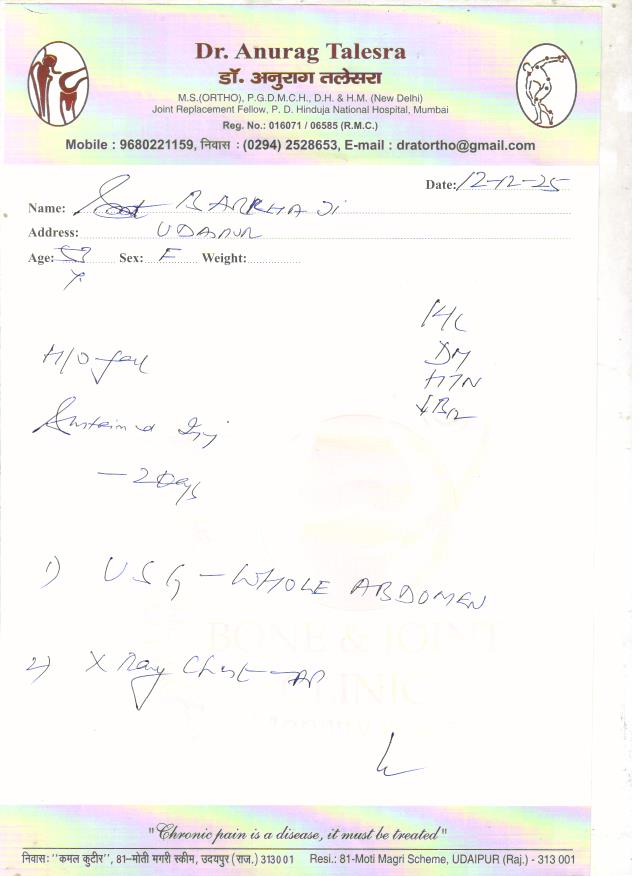 Dr. Anurag Talesra
डॉ. अनुराग तलेसरा
M.S.(ORTHO), P.G.D.M.C.H., D.H. & H.M. (New Delhi)
Joint Replacement Fellow, P. D. Hinduja National Hospital, Mumbai
Reg. No.: 016071 / 06585 (R.M.C.)
Mobile : 9680221159, निवास : (0294) 2528653, E-mail : dratortho@gmail.com
Date: 12-12-25
Name: BARKHA Ji
Address: UDAIPUR
Age: Sex: F Weight:
DM
HTN
H/O fall
Sustained Inj
— 2 Days
1) USG - WHOLE ABDOMEN
2) X Ray Chest - AP
BONE & JOINT
CLINIC
"Chronic pain is a disease, it must be treated"
निवास: "कमल कुटीर", 81-मोती मगरी स्कीम, उदयपुर (राज.) 313001 Resi.: 81-Moti Magri Scheme, UDAIPUR (Raj.) - 313 001